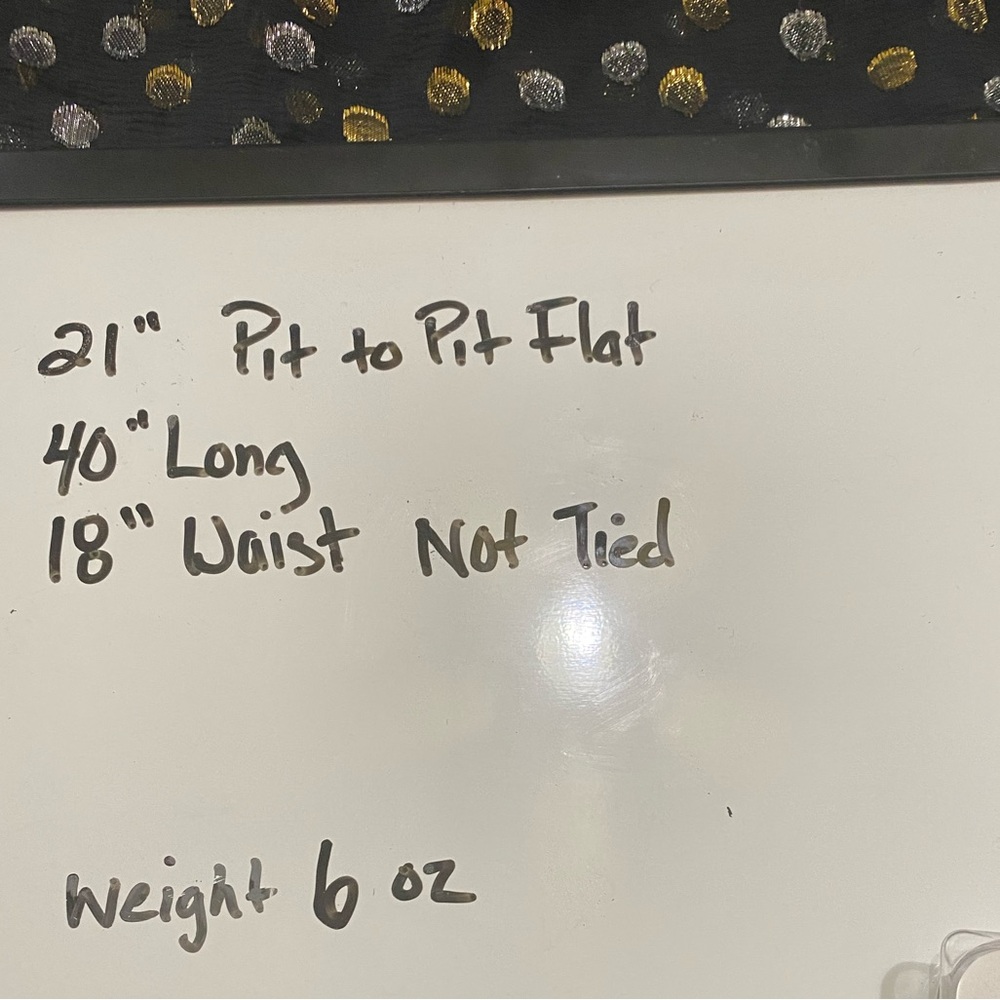 21" Pit to Pit Flat
40" Long
18" Waist Not Tied
Weight 6 oz